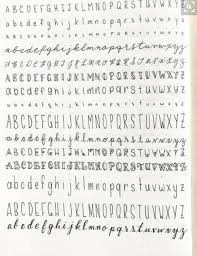 ABCDEFGHIJKLMNOPQRSTUVWXYZ
abcdefghijklmnopqrstuvwxyz
abcdefghijklmnopqrstuvwxyz
abcdefghijklmnopqrstuvwxyz
ABCDEFGHIJKLMNOPQRSTUVWXYZ
abcdefghijklmnopqrstuvwxyz
abcdefghijklmnopqrstuvwxyz
ABCDEFGHIJKLMNOPQRSTUVWXYZ
abcdefghijklmnopqrstuvwxyz
ABCDEFGHIJKLMNOPQRSTUVWXYZ
abcdefghijklmnopqrstuvwxyz
ABCDEFGHIJKLMNOPQRSTUVWXYZ
abcdefghijklmnopqrstuvwxyz